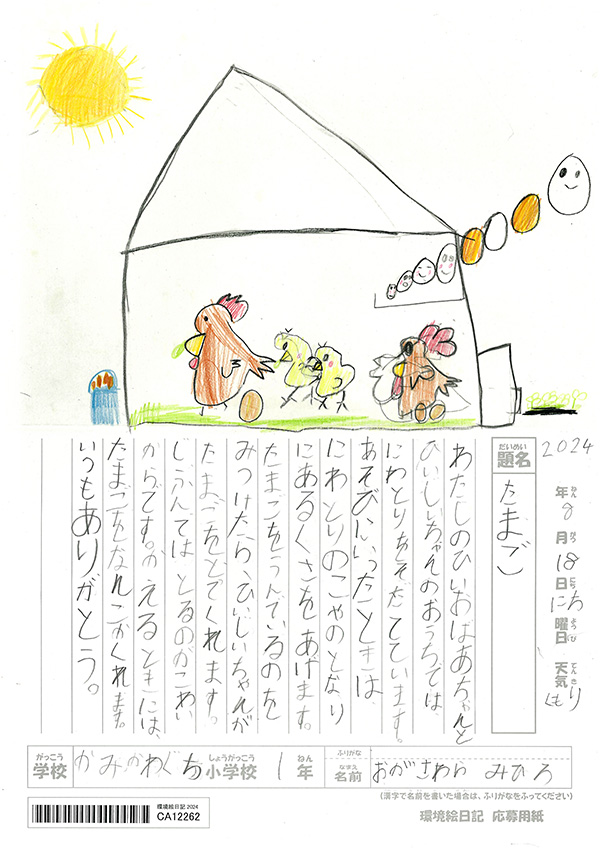 2024
年ねん
8
月がつ
18
日にち
にち
曜日ようび
天気てんき
くもり
題名だいめい
たまご
わたしのひいおばあちゃんと
ひいじいちゃんのおうちでは、
にわとりをそだてています。
あそびにいったときは
にわとりのこやのとなり
にあるくさをあげます。
たまごをうんでいるのを
みつけたら、ひいじいちゃんが
たまごをとてくれます。
じぶんではとるのがこわい
からです。かえるときには、
たまごをなんこかくれます。
いつもありがとう。
学校がっこう
かみかわぐち
小学校しょうがっこう
1
年ねん
ふりがな
名前なまえ
おがさわら みひろ
(漢字で名前を書いた場合は、ふりがなをふってください)
環境絵日記 2024
CA12262
環境絵日記 応募用紙